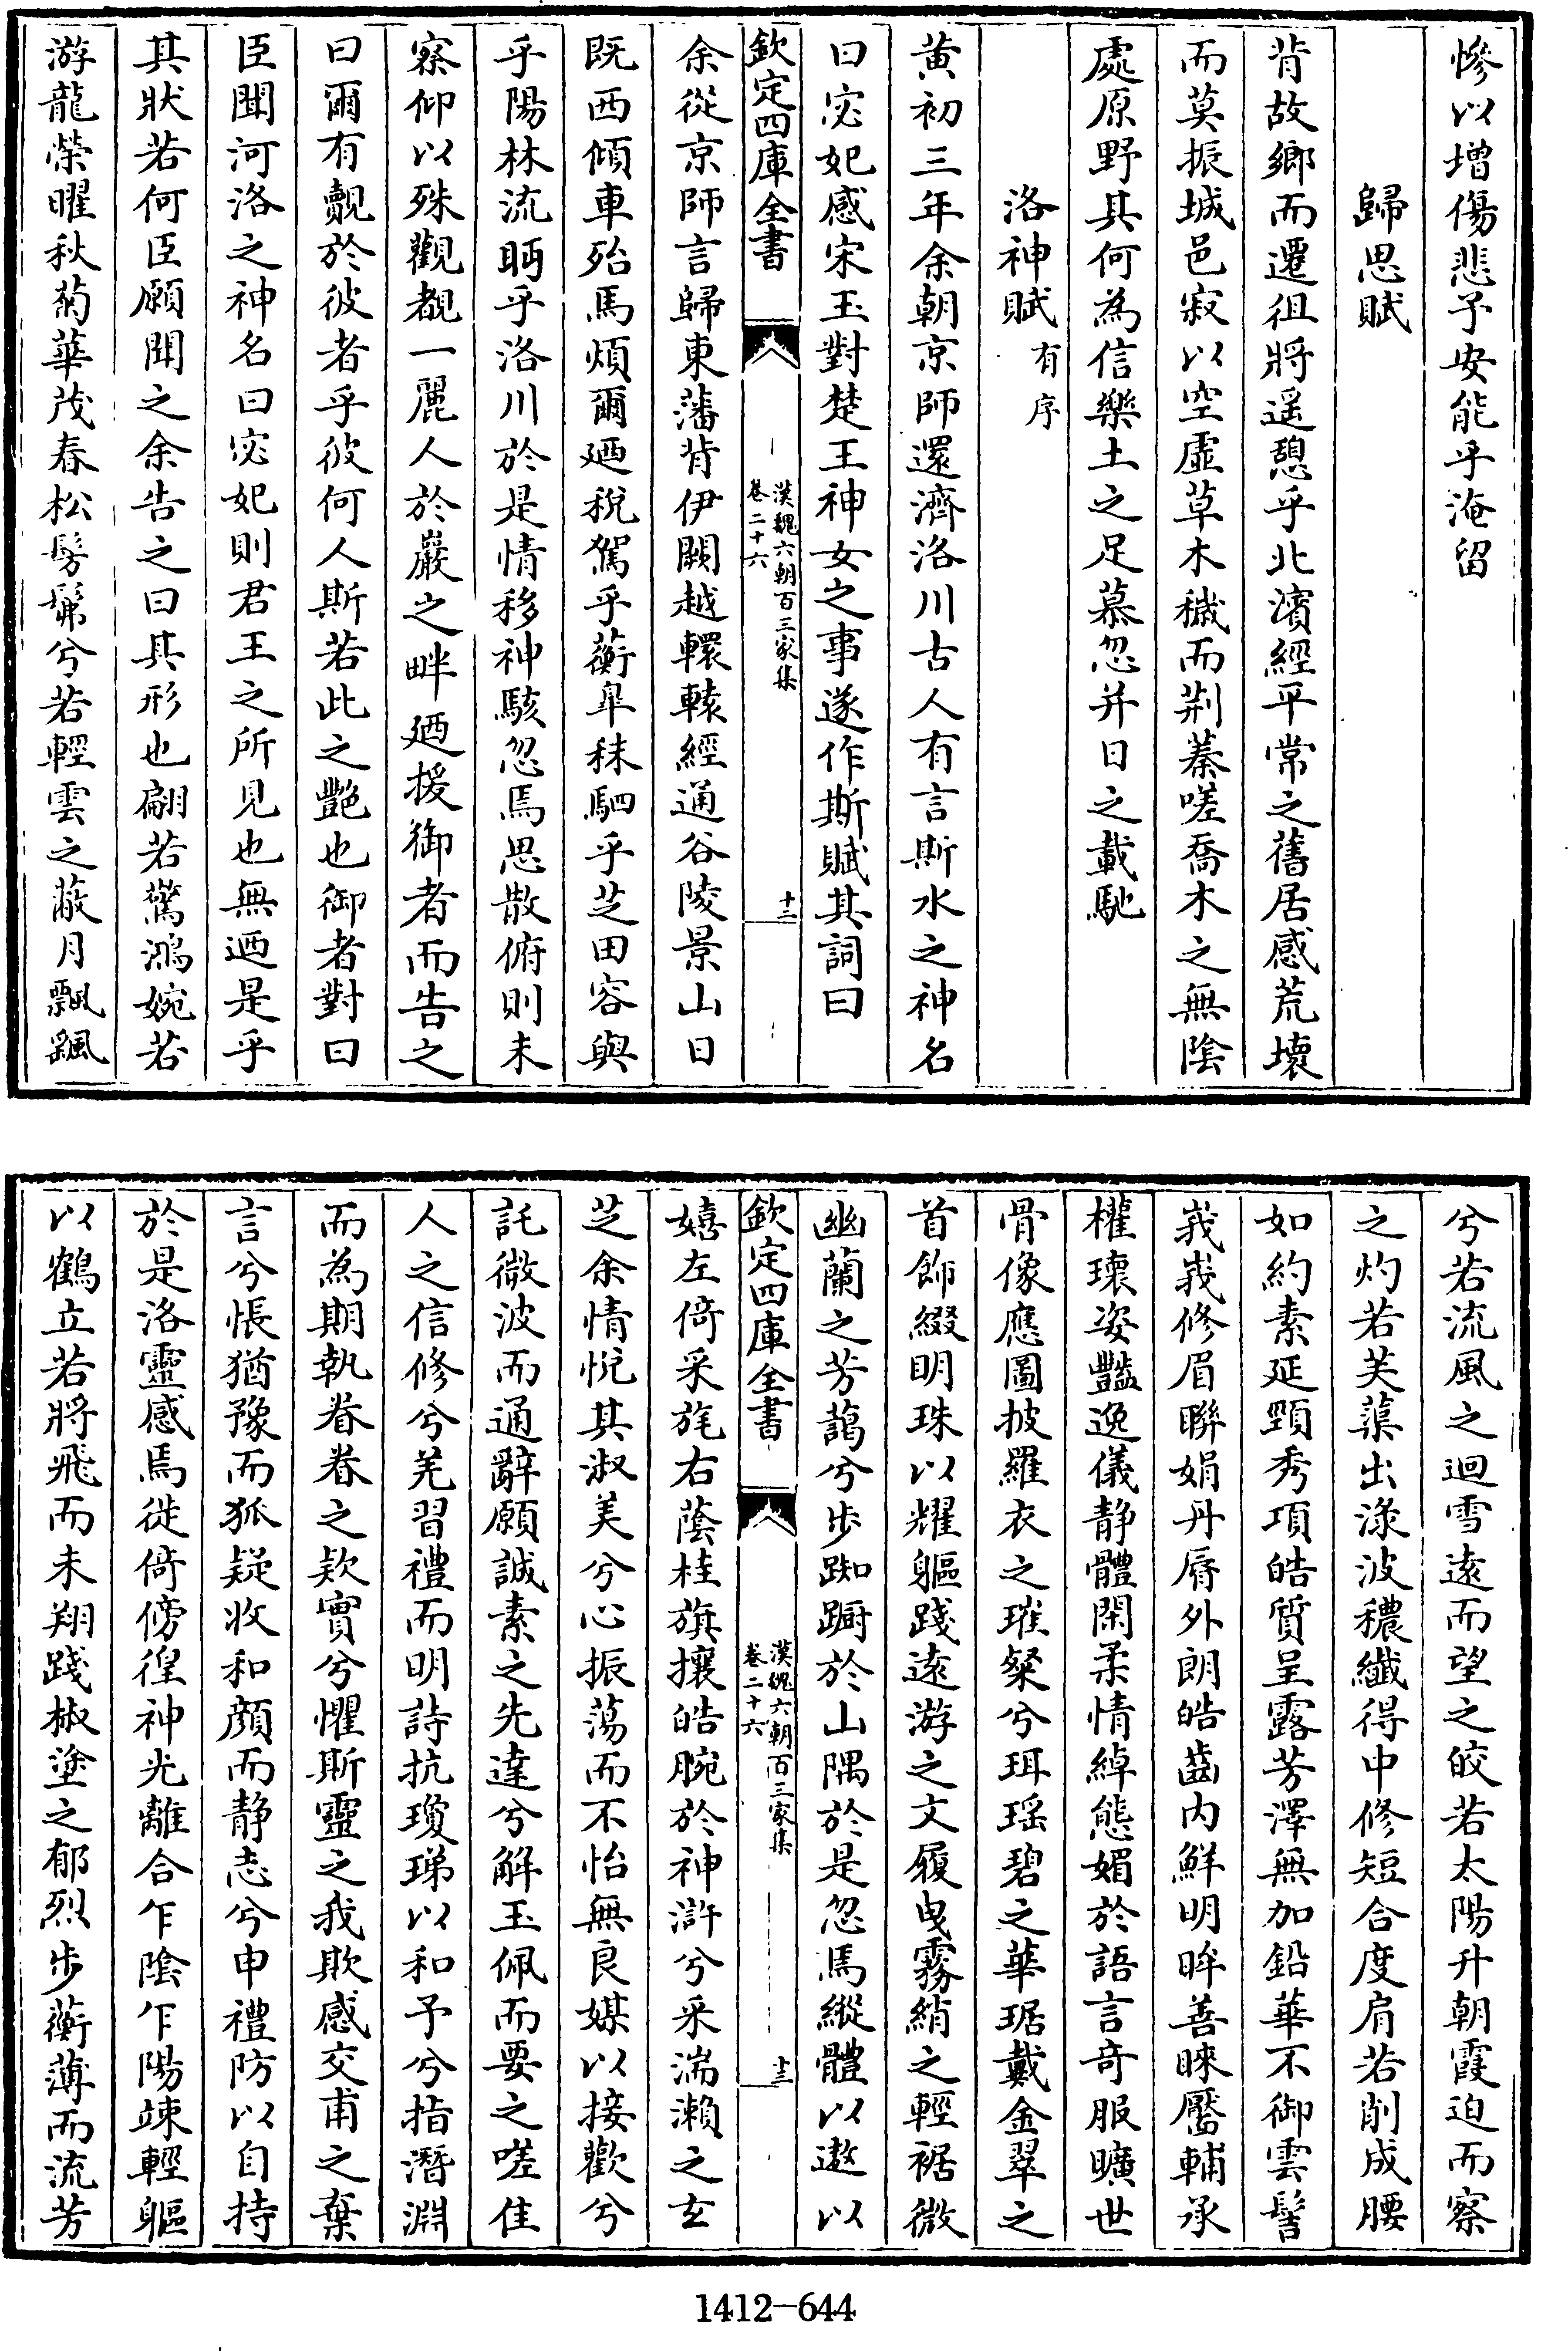 慘以增傷悲予安能乎淹留
歸思賦
背故鄉而遷徂將遥憩乎北濱經平常之舊居感荒壞
而莫振城邑寂以空虛草木穢而荆蓁嗟喬木之無陰
處原野其何為信樂土之足慕忽并日之載馳
洛神賦有序
黄初三年余朝京師還濟洛川古人有言斯水之神名
曰宓妃感宋玉對楚王神女之事遂作斯賦其詞曰
欽定四庫全書
漢魏六朝百三家集
卷二十六
十二
余從京師言歸東藩背伊闕越轘轅經通谷陵景山日
既西傾車殆馬煩爾廼稅駕乎蘅臯秣駟乎芝田容與
乎陽林流眄乎洛川於是情移神駭忽焉思散俯則未
察仰以殊觀覩一麗人於巖之畔廼援御者而告之
曰爾有覿於彼者乎彼何人斯若此之艶也御者對曰
臣聞河洛之神名曰宓妃則君王之所見也無廼是乎
其狀若何臣願聞之余告之曰其形也翩若驚鴻婉若
游龍榮曜秋菊華茂春松髣髴兮若輕雲之蔽月飄飖
兮若流風之迴雪遠而望之皎若太陽升朝霞迫而察
之灼若芙蕖出渌波穠纖得中修短合度肩若削成腰
如約素延頸秀項皓質呈露芳澤無加鉛華不御雲髻
峩峩修眉聯娟丹脣外朗皓齒内鮮明眸善睐靨輔承
權瓌姿豔逸儀静體閑柔情綽態媚於語言奇服曠世
骨像應圖披羅衣之璀粲兮珥瑶碧之華琚戴金翠之
首飾綴明珠以耀軀踐遠游之文履曳霧綃之輕裾微
幽蘭之芳藹兮步踟蹰於山隅於是忽焉縱體以遨以
欽定四庫全書
漢魏六朝百三家集
卷二十六
十三
嬉左倚采旄右蔭桂旗攘皓腕於神滸兮采湍瀨之玄
芝余情悅其淑美兮心振蕩而不怡無良媒以接歡兮
託微波而通辭願誠素之先達兮解玉佩而要之嗟佳
人之信修兮羌習禮而明詩抗瓊珶以和予兮指潛淵
而為期執眷眷之款實兮懼斯靈之我欺感交甫之棄
言兮悵猶豫而狐疑收和顔而静志兮申禮防以自持
於是洛靈感焉徙倚傍徨神光離合乍陰乍陽竦輕軀
以鶴立若將飛而未翔踐椒塗之郁烈步蘅薄而流芳
1412-644